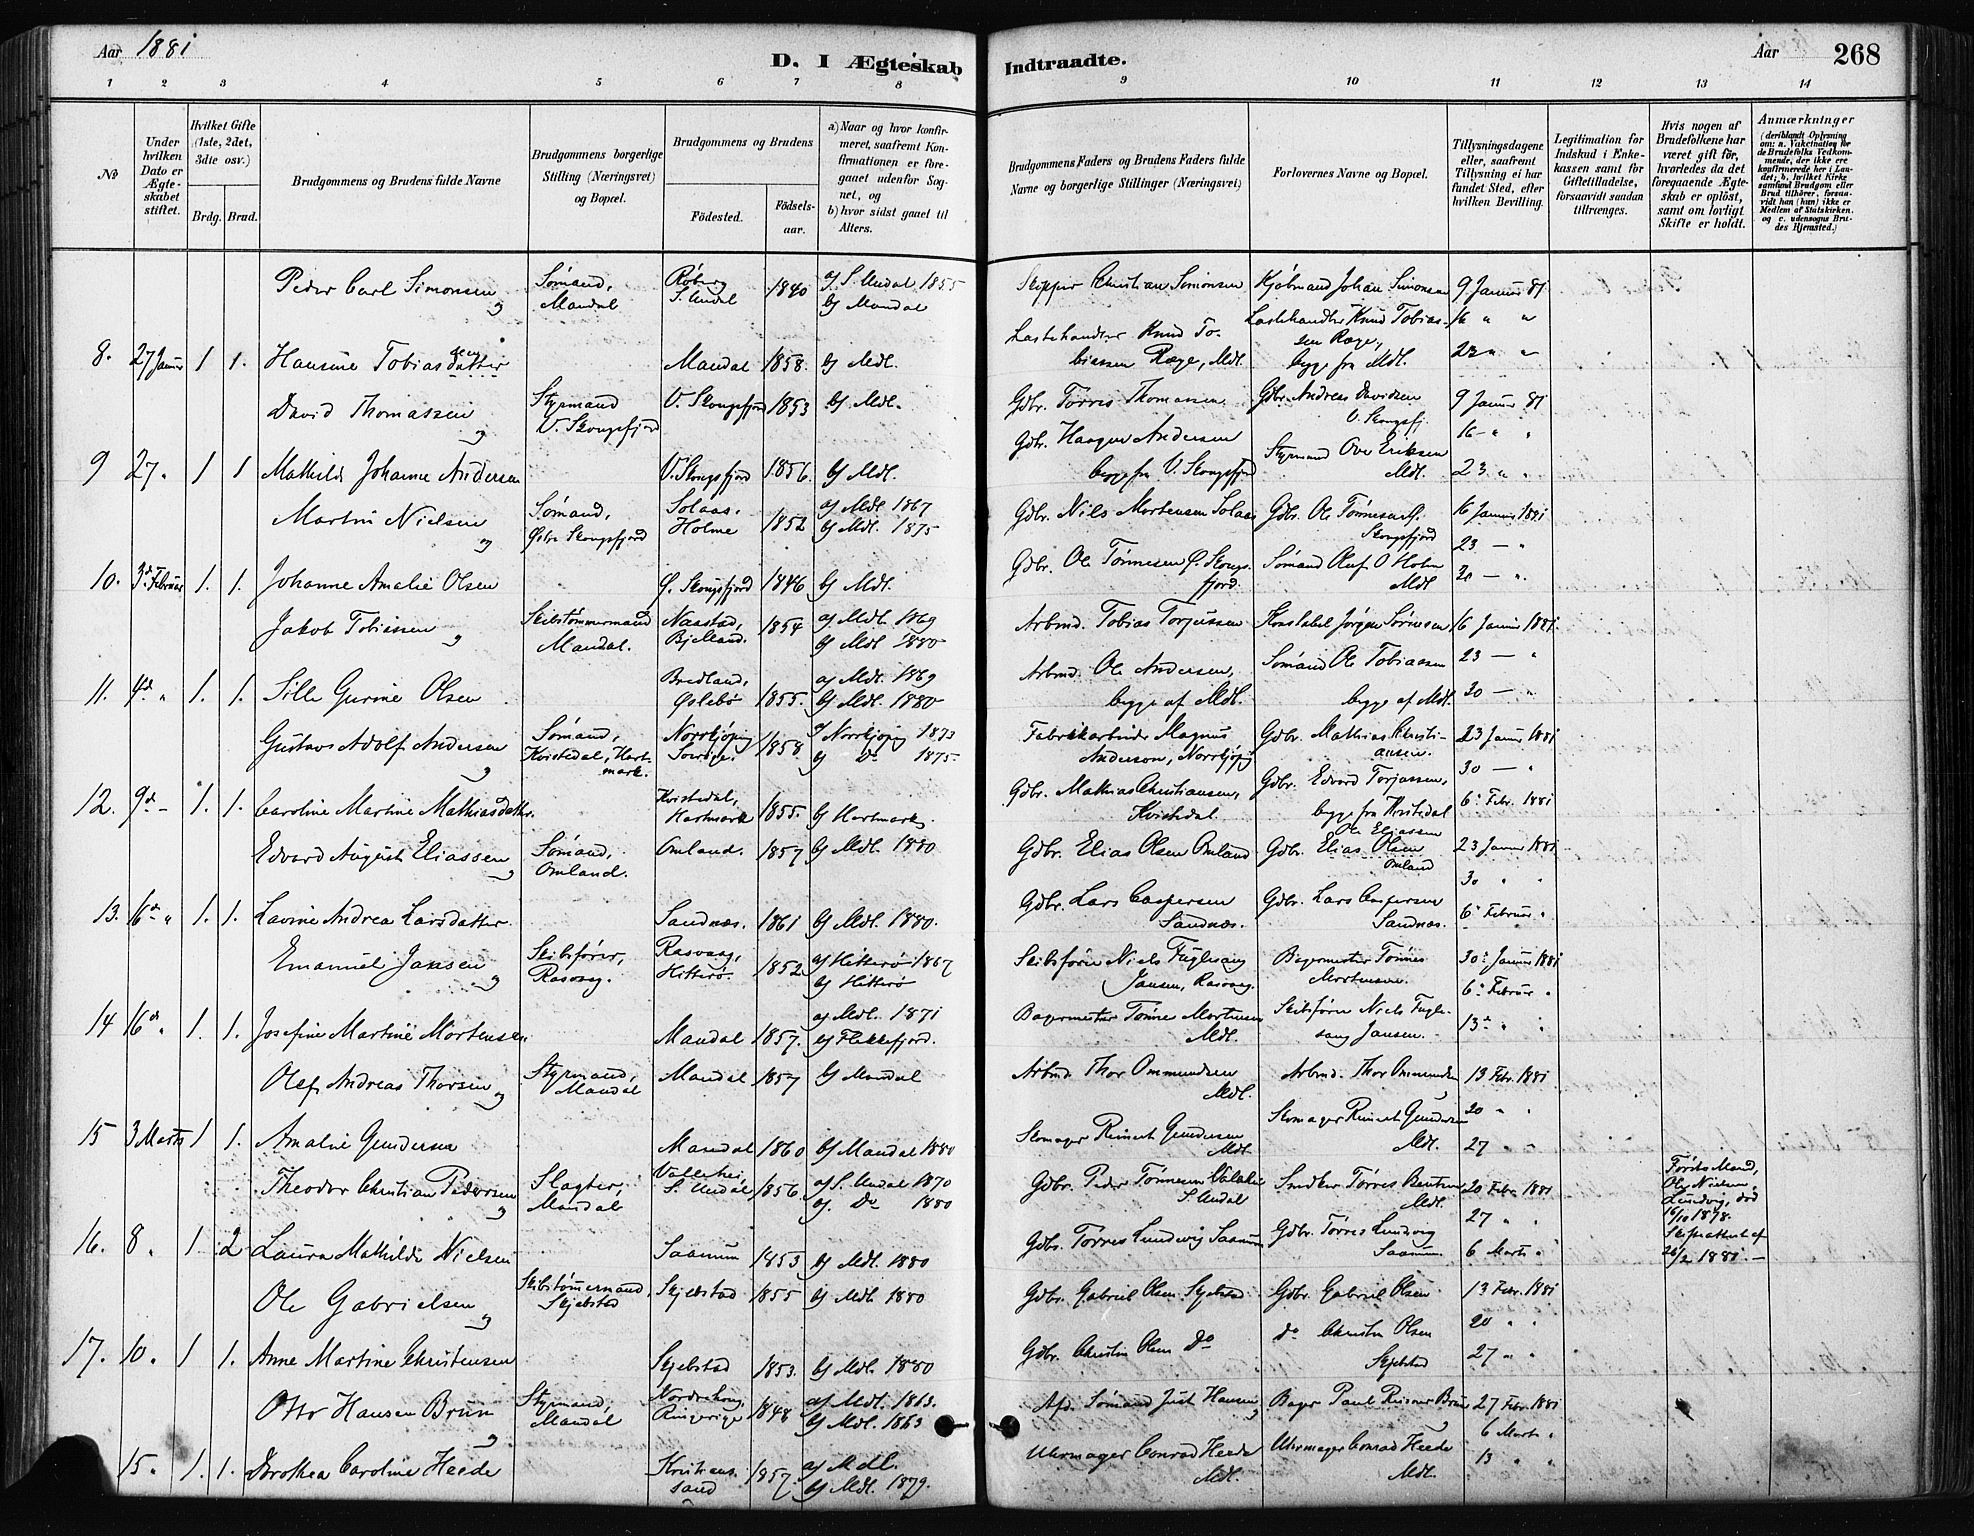 Aar 1881
D. I Ægteskab Indtraadte.
Aar
268
1 2 3 4 5 6 7 8 9 10 11 12 13 14
No
Under hvilken Dato er Ægteskabet stiftet.
Hvilket Gifte (1ste, 2det, 3die osv.)
Brdg. Brud.
Brudgommens og Brudens fulde Navne
Brudgommens borgerlige Stilling (Næringsvei) og Bopæl.
Brudgommens og Brudens
Födested. Födselsaar.
a) Naar og hvor konfirmeret, saafremt Konfirmationen er foregaaet udenfor Sognet, og
b) hvor sidst gaaet til Alters.
Brudgommens Faders og Brudens Faders fulde Navne og borgerlige Stillinger (Næringsvei)
Forlovernes Navne og Bopæl.
Tillysningsdagene eller, saafremt Tillysning ei har fundet Sted, efter hvilken Bevilling.
Legitimation for Indskud i Enkekassen samt for Giftetilladelse, forsaavidt saadan tiltrænges.
Hvis nogen af Brudefolkene har været gift för, hvorledes da det foregaaende Ægteskab er oplöst, samt om lovligt Skifte er holdt.
Anmærkninger
(deriblandt Oplysning om: a. Vakcination for de Brudefolks Vedkommende, der ikke ere konfirmerede her i Landet; b. hvilket Kirkesamfund Brudgom eller Brud tilhörer, forsaavidt han (hun) ikke er Medlem af Statskirken, og c. udensogns Brudes Hjemsted.)
Peder Carl Simonsen og Sömand, Mandal
S. Undal 1840 a/ S. Undal 1855 b/ Mandal
Skipper Christian Simonsen Kjöbmand Johan Simonsen 9 Januar 81
16 " "
8. 27 Januar 1 1. Hansine Tobiasdatter Mandal 1858. b/ Mdl.
Lastehandler Knud Tobiassen Røge, Mdl. Lastehandler Knud Tobiassen Røge, begge fra Mdl. 23 " "
David Thomassen og Styrmand V. Skougsfjord V. Skougsfjord 1853 b/ Mdl.
Gdbr. Törres Thomassen Gdbr. Andreas Davidsen V. Skougsfj. 9 Januar 81
16 - " "
9 27 " 1 1 Mathilde Johanne Andersen V. Skougsfjord 1856. b/ Mdl.
Gdbr. Haagen Andersen begge fra V. Skougsfjord Styrmand Ove Eriksen Mdl. 23 " "
Martin Nielsen og Sömand, Østre Skougsfjord Solaas, Holme 1852 a/ Mdl 1867 b/ Mdl. 1875
Gdbr. Niels Mortensen Solaas Gdbr. Ole Tönnesen Ø. Skougsfjord 16 Januar 1881
23 — "
10. 3d Februar 1. 1. Johanne Amalie Olsen Ø. Skougsfjord 1846 b/ Mdl.
Gdbr. Ole Tönnesen Ø. Skougsfjord. Sömand Oluf O Holm Mdl 30 — "
Jakob Tobiassen og Skibstömmermand Mandal. Naastad, Bjelland. 1854 a/ Mdl. 1869 b/ Mdl 1880
Arbmd. Tobias Torjussen Konstabel Jörgen Sörensen, 16 Januar 1881.
23 — "
11. 4d " 1. 1. Sille Gurine Olsen Bredland, Øslebø 1855. a/ Mdl. 1869 b/ Mdl. 1880
Arbmd. Ole Andersen, begge af Mdl. Sömand Ole Tobiassen begge af Mdl. 30 — "
Gustav Adolf Andersen og Sömand, Kvistedal, Hartmark. Norrkjöping Sverige. 1858 a/ Norrkjöping 1873 b/ Do 1875.
Fabrikarbeider Magnus Anderson, Norrkjöping Gdbr. Mathias Christiansen. 23 Januar 1881
30 — "
12. 9d — 1. 1. Caroline Martine Mathiasdatter. Kvistedal, Hartmark 1855. b/ Hartmark.
Gdbr. Mathias Christiansen, Kvistedal. Gdbr. Edvard Torjussen, begge fra Kvistedal 6te Febr. 1881
Edvard August Eliassen og Sömand, Omland. Omland. 1857 b/ Mdl. 1880
Gdbr. Elias Olsen Omland Gdbr. Elias Olsen Ole Eliassen Omland 23 Januar 1881
30 " "
13. 16d " 1. 1. Lavine Andrea Larsdatter. Sandnæs. 1861 b/ Mdl. 1880.
Gdbr. Lars Caspersen Sandnæs. Gdbr. Lars Caspersen Sandnæs. 6te Februar "
Emanuel Jansen og Skibsförer, Rasvaag. Rasvaag, Hitterø. 1852 a/ Hitterø 1867 b/ Hitterø
Skibsförer Niels Fuglesang Jansen, Rasvaag. Bagermester Tönnes Mortensen. 30te Januar 1881
6te Februar "
14 16d " 1. 1. Josefine Martine Mortensen Mandal 1857. a/ Mdl. 1871 b/ Flekkefjord.
Bagermester Tönnes Mortensen Mdl. Skibsförer Niels Fuglesang Jansen. 13de " "
Olef Andreas Thorsen og Styrmand, Mandal Mandal 1857 b/ Mandal
Arbmd. Thor Ommundsen Mdl. Arbmd. Thor Ommundsen 13 Febr. 1881
20 " "
15 3 Marts 1 1. Amalie Gundersen Mandal 1860 b/ Mandal 1880
Skomager Reinert Gundersen Mdl. Skomager Reinert Gundersen Mdl. 27 " "
Theodor Christian Pedersen og Slagter, Mandal Vallehei, S. Undal 1856. a/ S. Undal 1870 a/. Do 1880
Gdbr. Peder Tönnesen S. Undal Snedker Törres Mdl. 20 Febr. 1881
27 " "
Förste Mand, Ole Nielsen, Lundvig, död 16/10 1878. Skifteattest af 26/2 1881. —
16. 8 " 1 2 Laura Mathilde Nielsen Saanum 1853 b/ Mdl. 1880
Gdbr. Törres Lundevig Saanum Gdbr. Törres Lundevig Saanum 6 Marts "
Ole Gabrielsen og Skibstömmermand Skjebstad Skjebstad 1855 b/ Mdl. 1880
Gdbr. Gabriel Olsen Skjebstad Gdbr. Gabriel Olsen 13 Febr. 1881
20 " "
17. 10. 1 1. Anne Martine Christensen Skjebstad 1853. b/ Mdl. 1880
Gdbr. Christen Olsen Do do Christen Olsen Skjebstad 27 " "
Otto Hansen Brun og Styrmand, Mandal Norderhoug, Ringerige 1848 a/ Mdl. 1863. b/ Mdl. 1863
Afd. Sömand Just Hansen, Bager Paul Reisner Brun 27 Febr. 1881
6 Marts "
15. 1. 1. Dorothea Caroline Heede Kristianssand 1857 a/ Mdl. b/ Mdl. 1879.
Uhrmager Conrad Heede Mdl. Uhrmager Conrad Heede Mdl. 13 " "